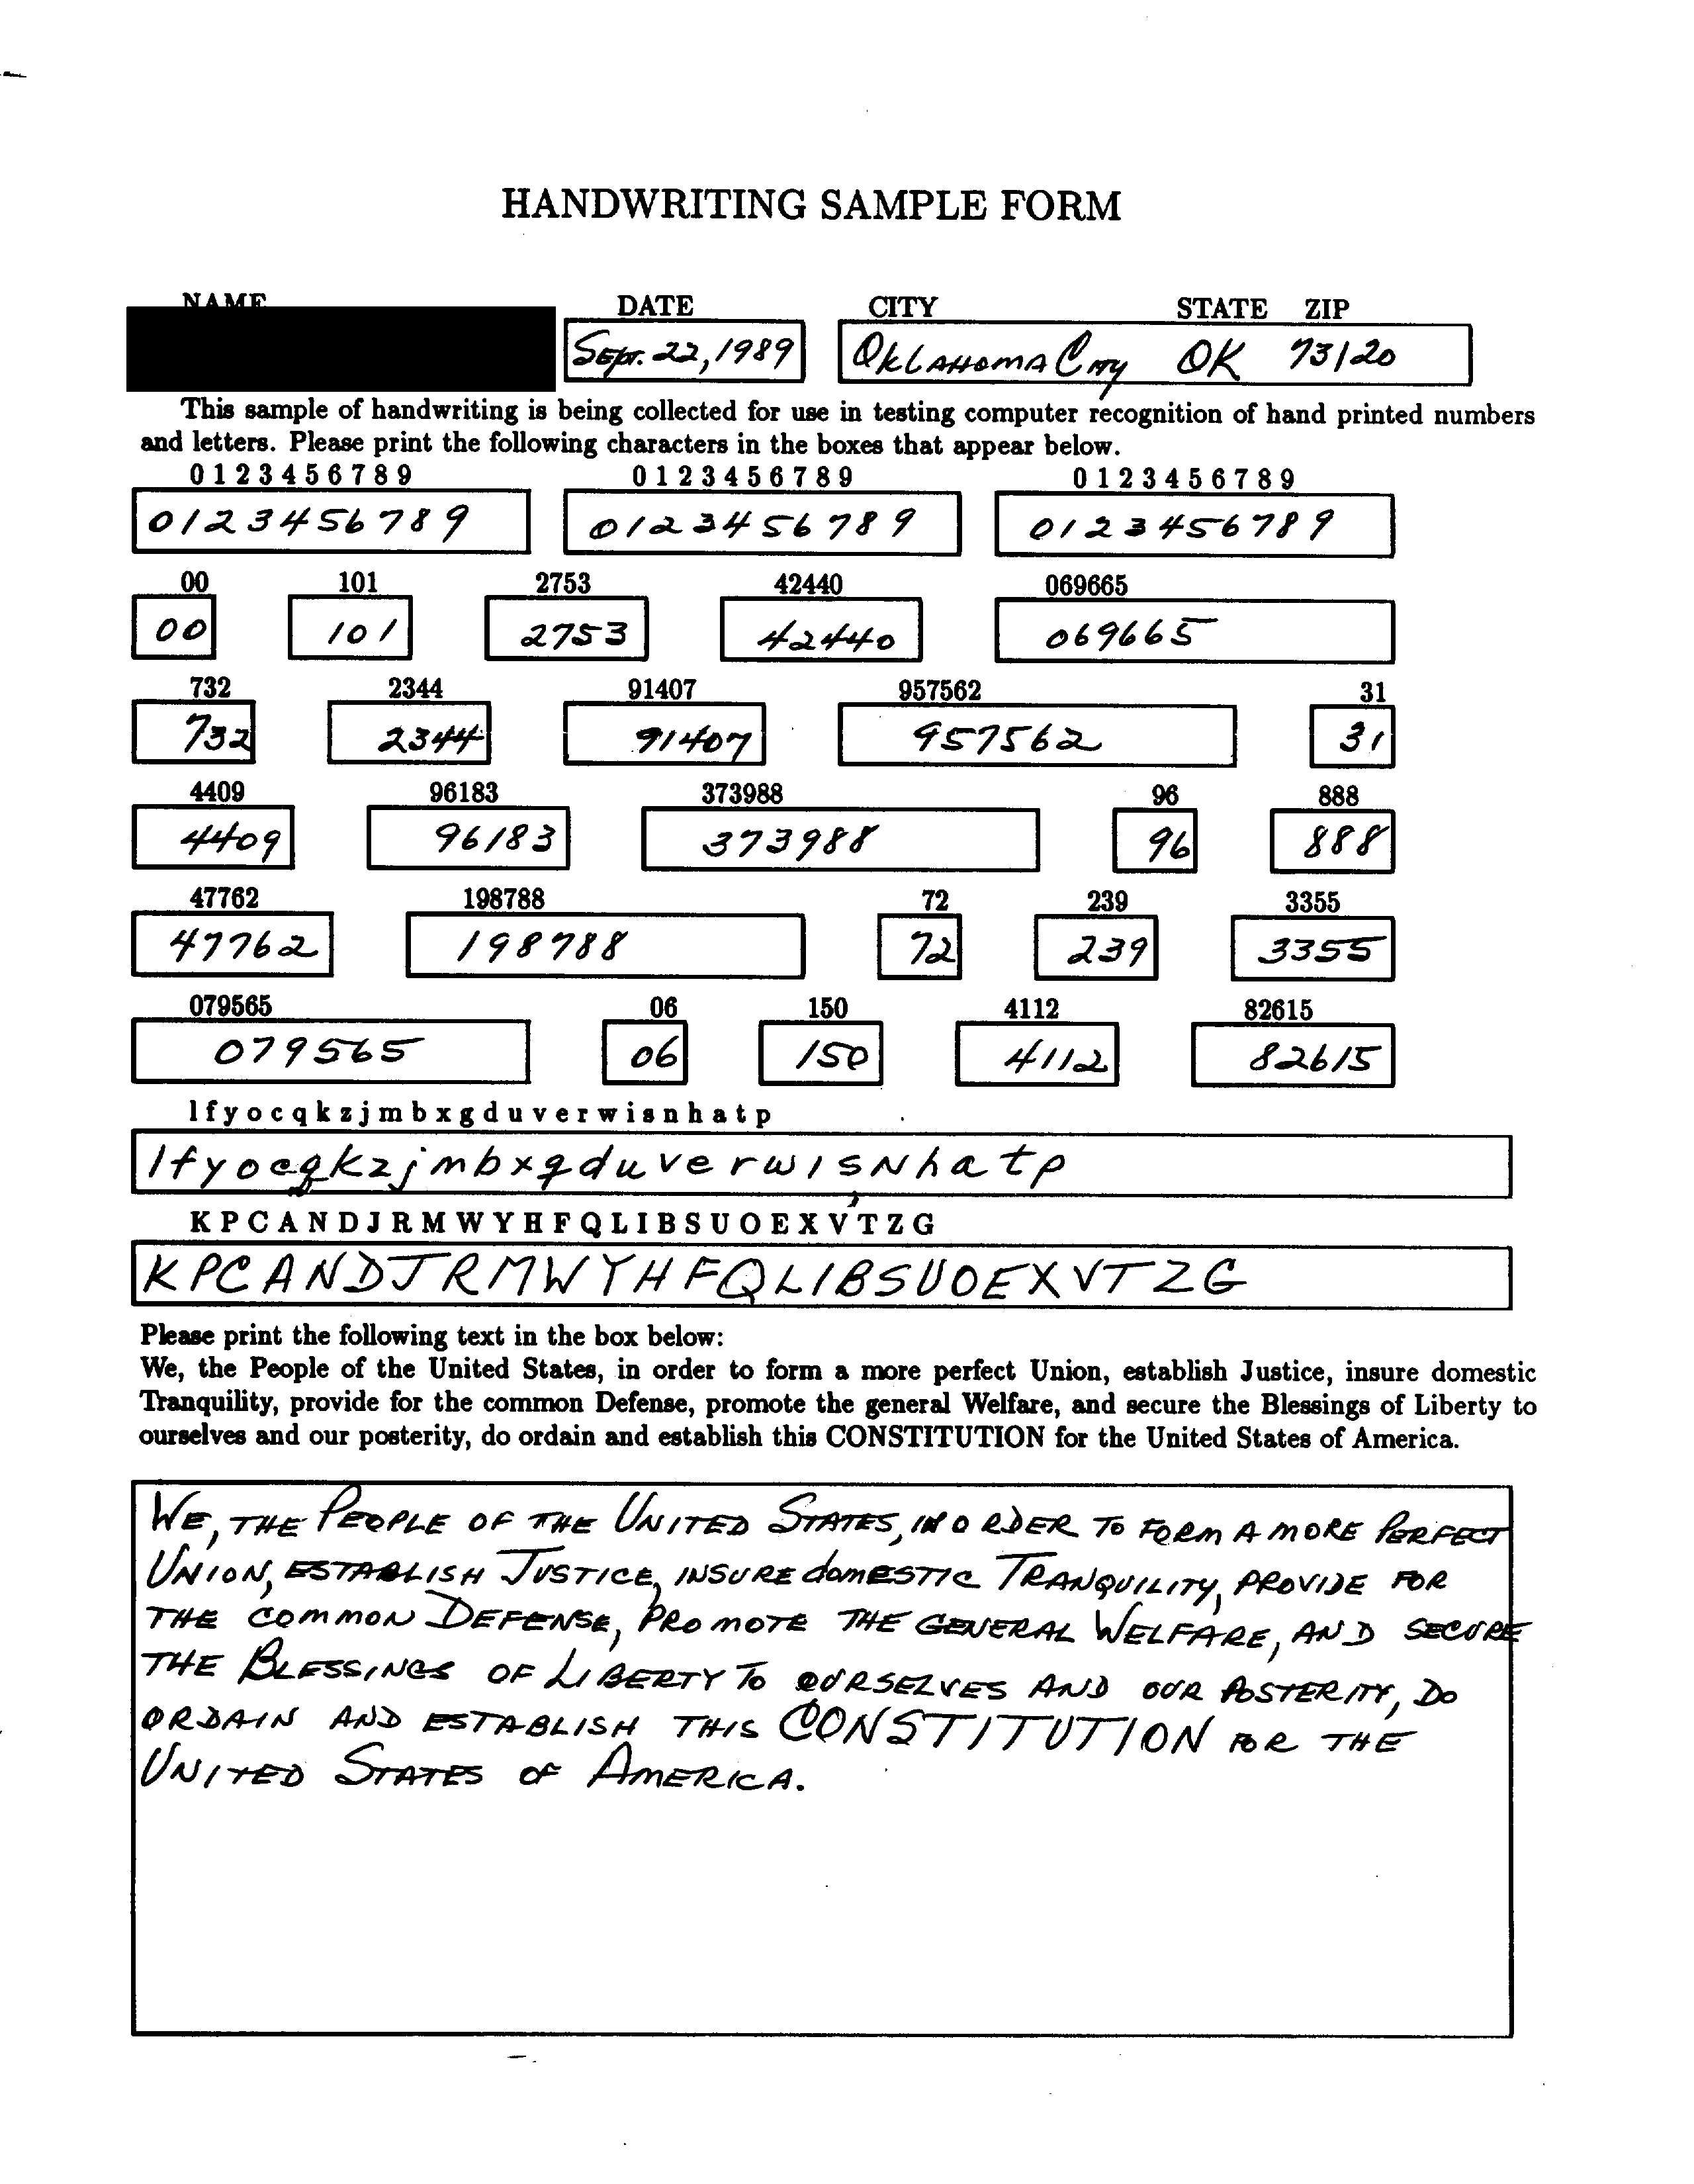 HANDWRITING SAMPLE FORM
NAME DATE CITY STATE ZIP
Sept. 22, 1989 Oklahoma City OK 73120
This sample of handwriting is being collected for use in testing computer recognition of hand printed numbers
and letters. Please print the following characters in the boxes that appear below.
0 1 2 3 4 5 6 7 8 9 0 1 2 3 4 5 6 7 8 9 0 1 2 3 4 5 6 7 8 9
0123456789 0123456789 0123456789
00 101 2753 42440 069665
00 101 2753 42440 069665
732 2344 91407 957562 31
732 2344 91407 957562 31
4409 96183 373988 96 888
4409 96183 373988 96 888
47762 198788 72 239 3355
47762 198788 72 239 3355
079565 06 150 4112 82615
079565 06 150 4112 82615
l f y o c q k z j m b x g d u v e r w i s n h a t p
l f y o c q k z j m b x g d u v e r w i s N h a t p
K P C A N D J R M W Y H F Q L I B S U O E X V T Z G
K P C A N D J R M W Y H F Q L I B S U O E X V T Z G
Please print the following text in the box below:
We, the People of the United States, in order to form a more perfect Union, establish Justice, insure domestic
Tranquility, provide for the common Defense, promote the general Welfare, and secure the Blessings of Liberty to
ourselves and our posterity, do ordain and establish this CONSTITUTION for the United States of America.
WE, THE PEOPLE OF THE UNITED STATES, IN ORDER TO FORM A MORE PERFECT
UNION, ESTABLISH JUSTICE, INSURE domESTIC TRANQUILITY, PROVIDE FOR
THE COMMON DEFENSE, PROMOTE THE GENERAL WELFARE, AND SECURE
THE BLESSINGS OF LIBERTY TO OURSELVES AND OUR POSTERITY, DO
ORDAIN AND ESTABLISH THIS CONSTITUTION FOR THE
UNITED STATES OF AMERICA.